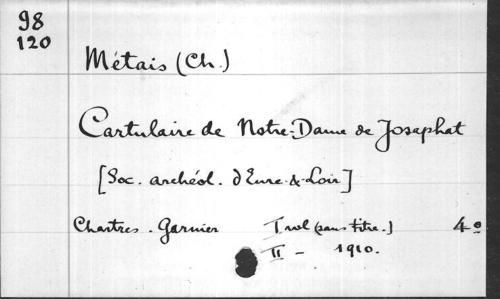 98
120
Métais (Ch.)
Cartulaire de Notre-Dame de Josaphat
[Soc. archéol. d'Eure-&-Loir]
Chartres. Garnier I vol (sans titre.) 4º
II - 1910.